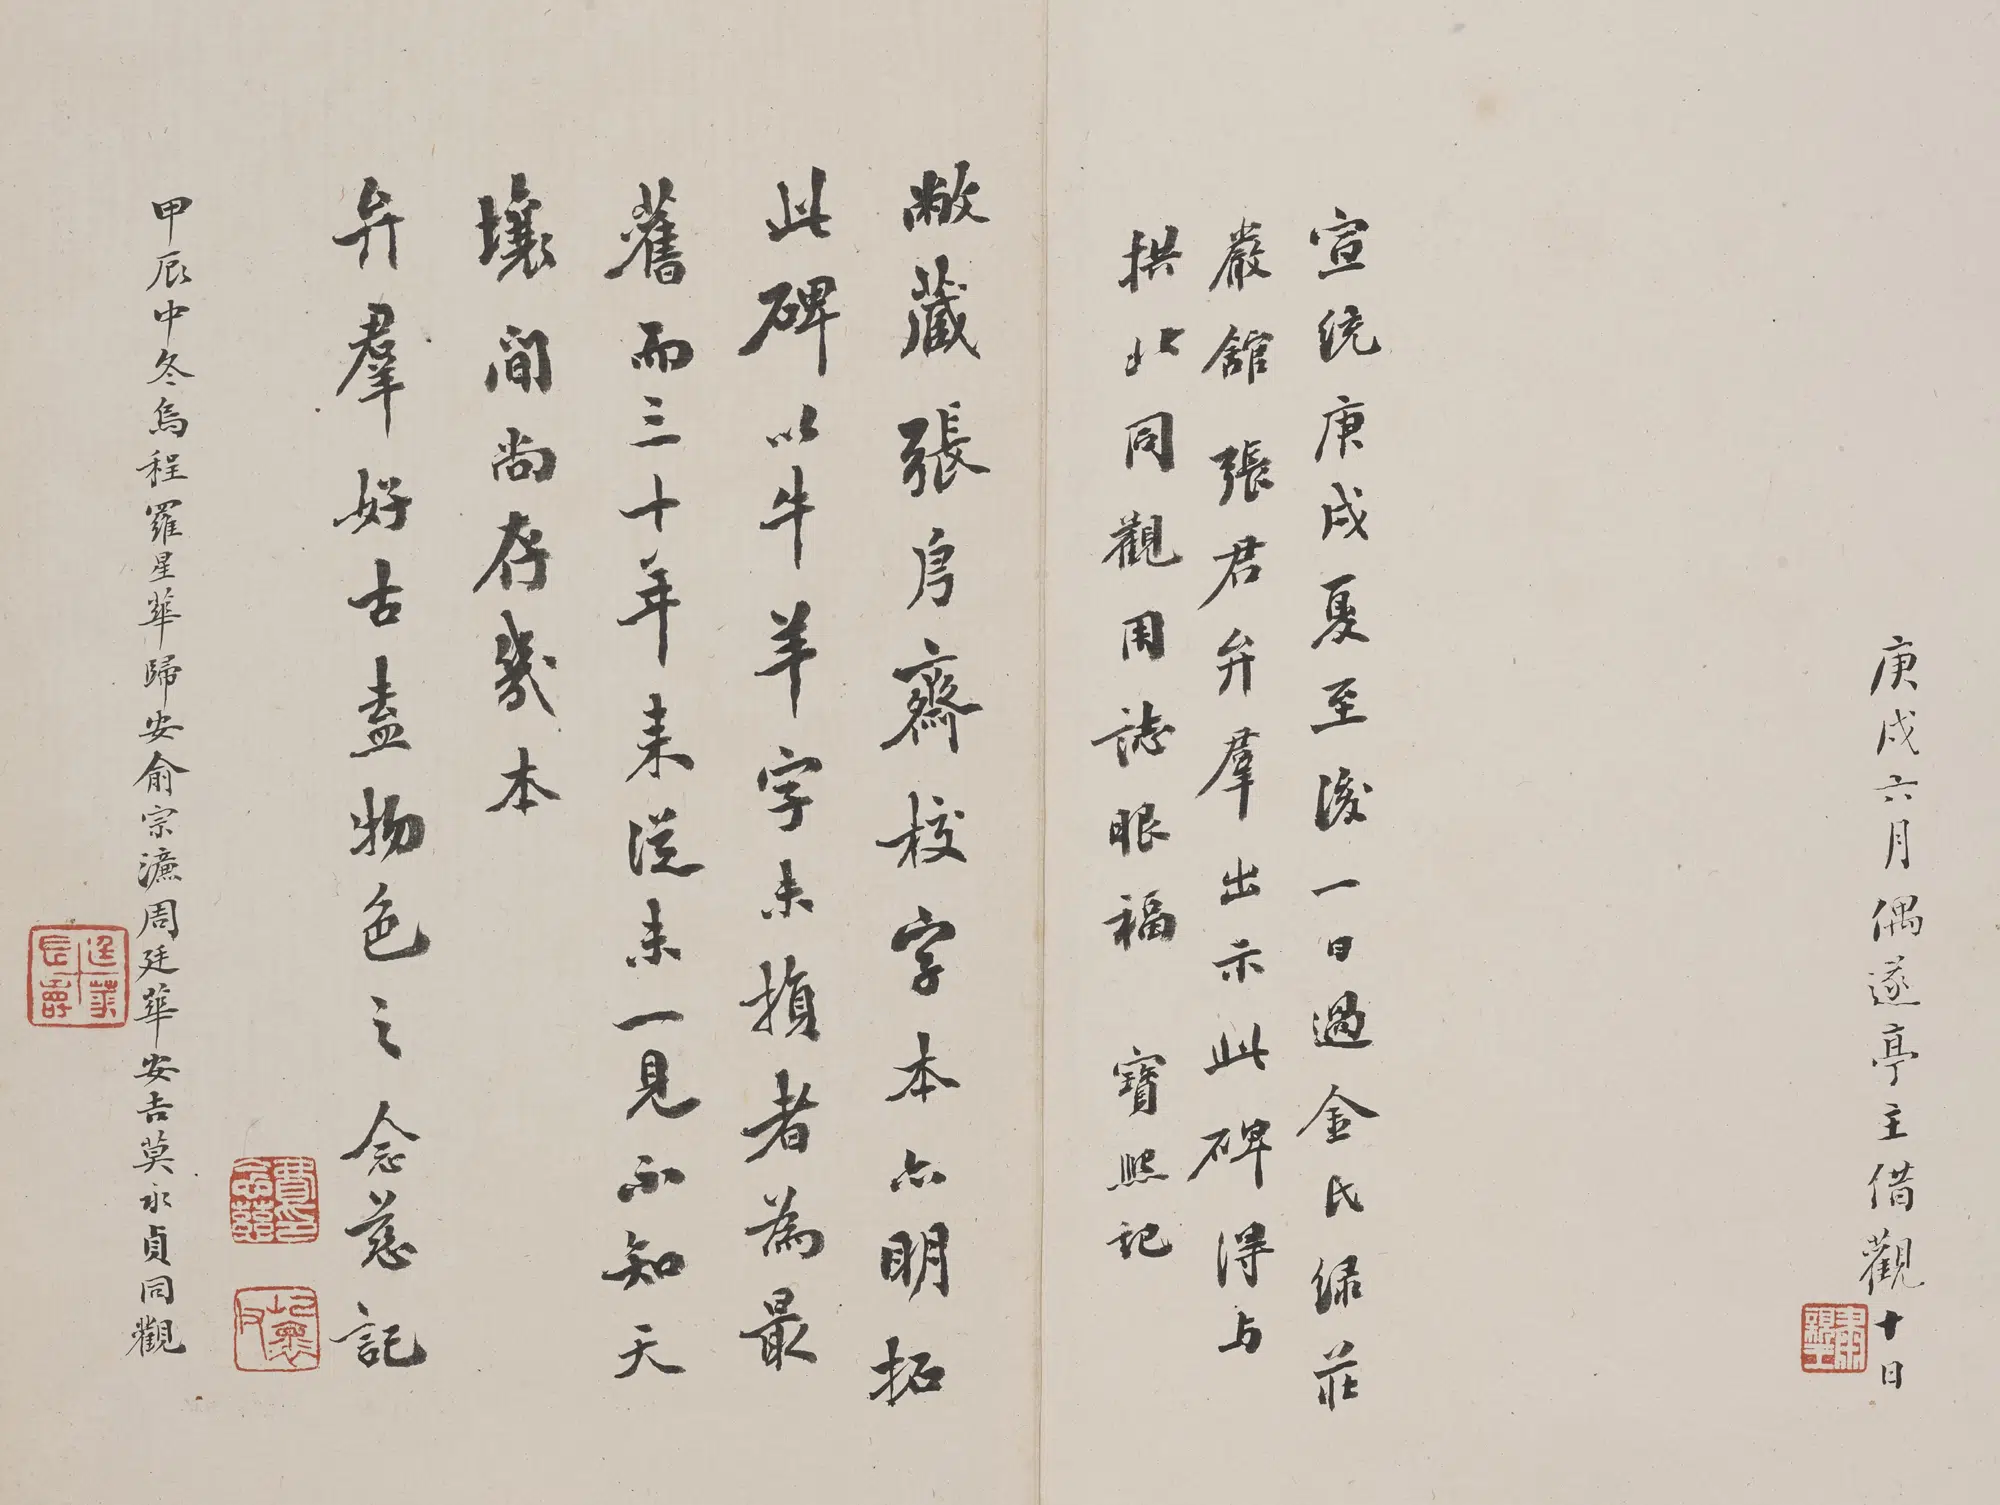 庚戌六月偶遂亭主借觀十日
宣統庚戌夏至後一日過金氏緑莊
嚴舘張君弁羣出示此碑得与
拱北同觀用誌眼福 寶熙記
敝藏張叔未齋校字本亦明拓
此碑以牛羊字未損者為最
舊而三十年来從未一見不知天
壤間尚存幾本
弁羣好古盍物色之念慈記
甲辰中冬烏程羅星華歸安俞宗濂周廷華安吉莫永貞同觀
廷華長壽
費念慈印